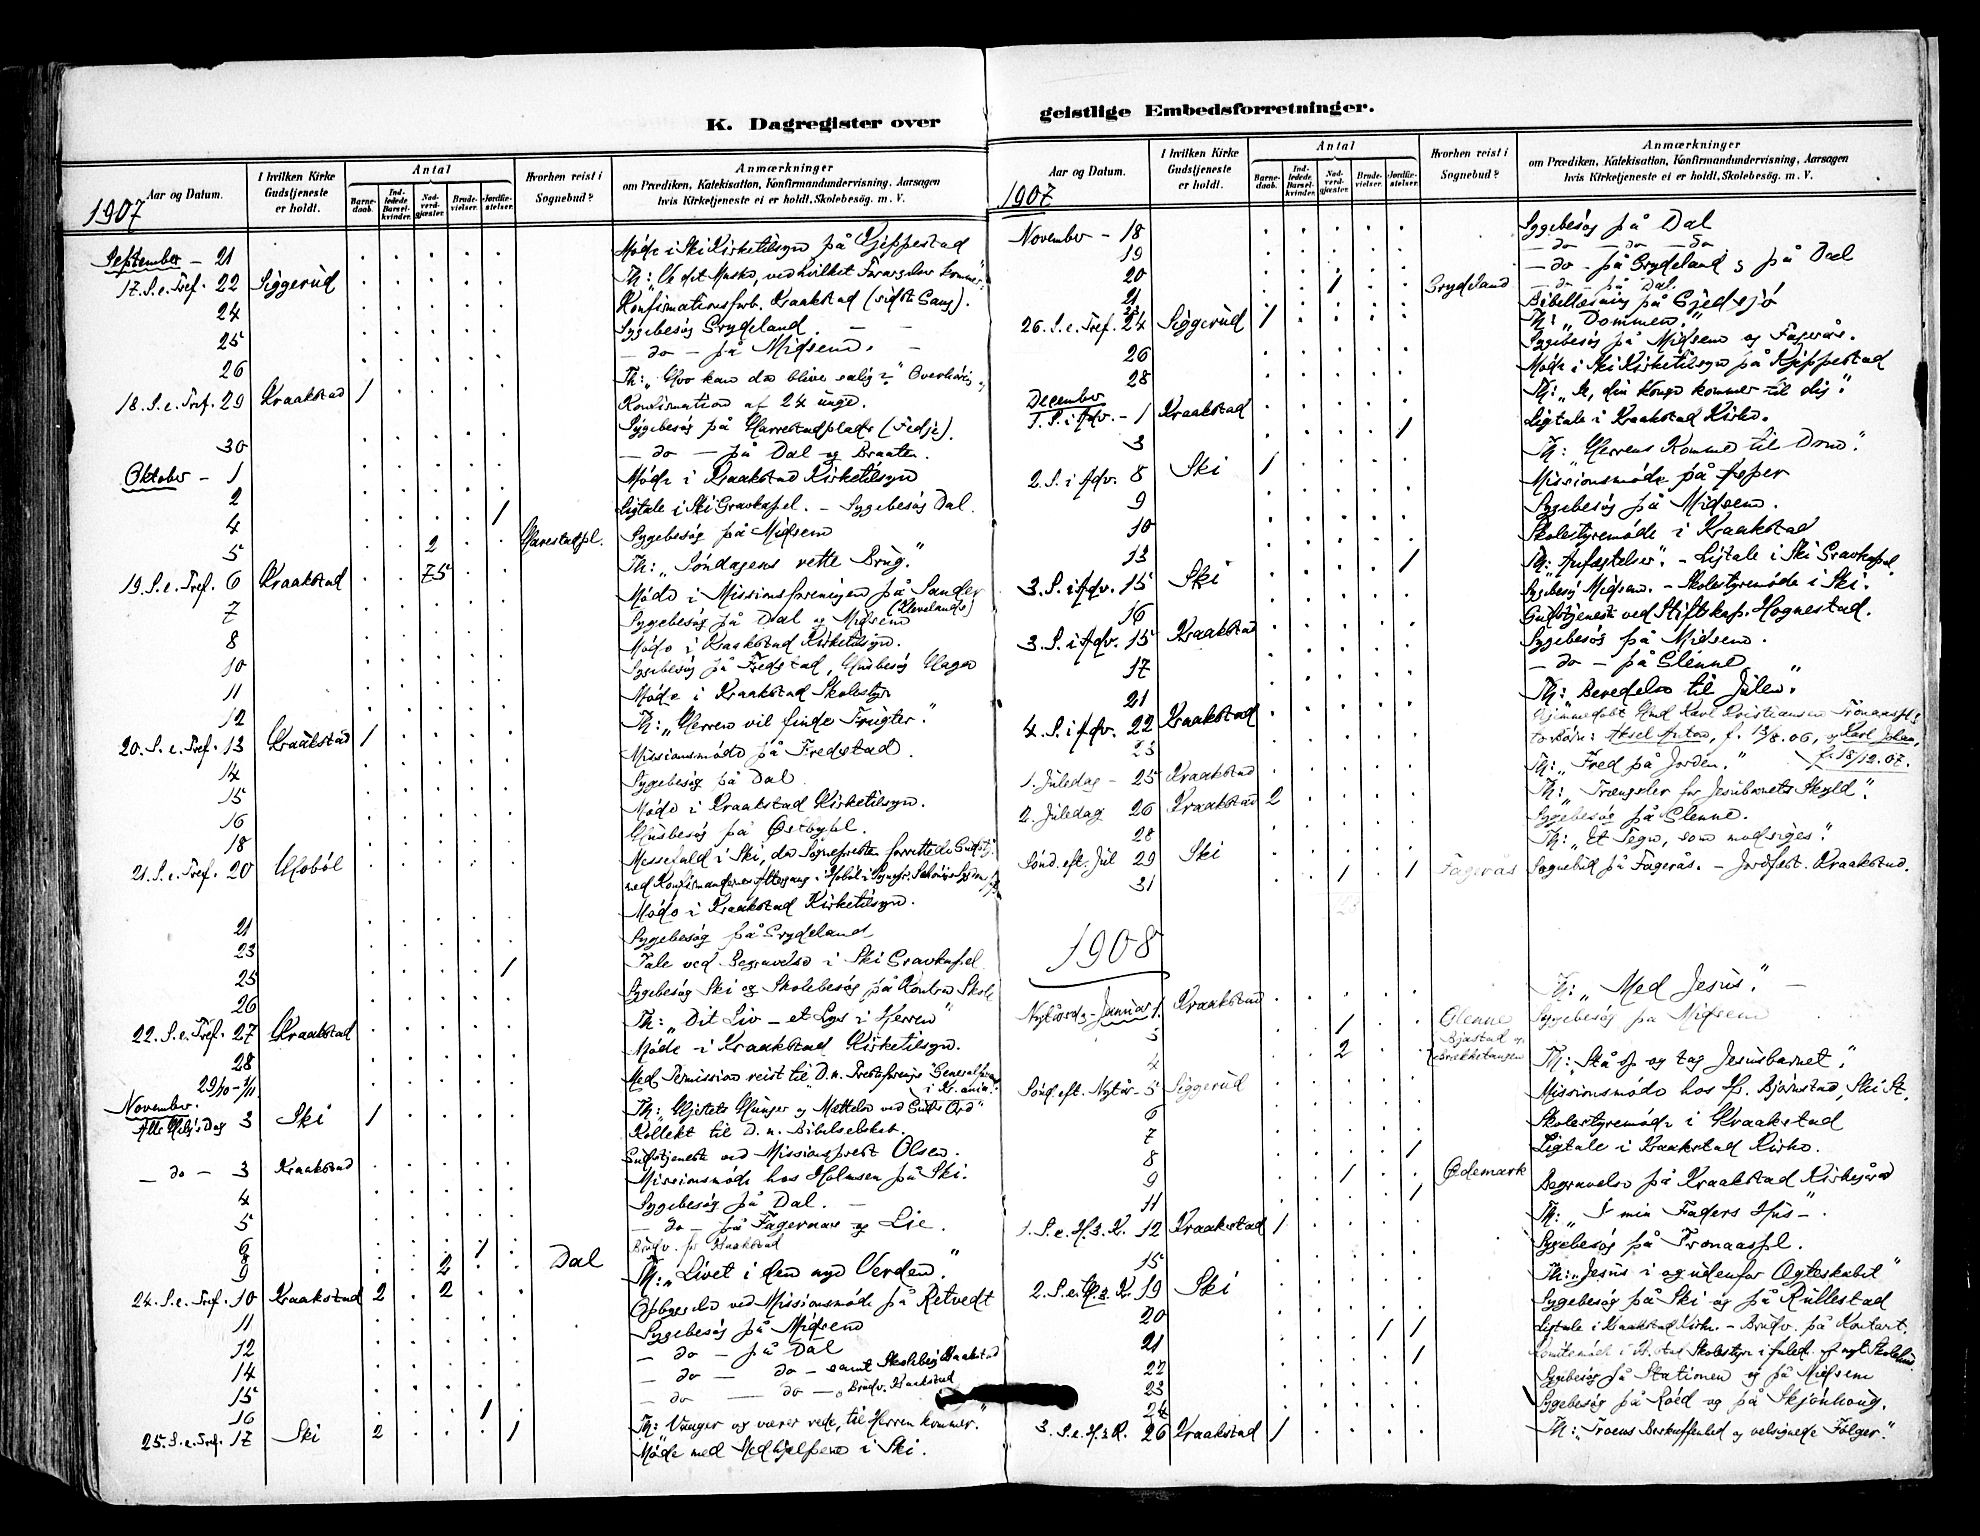 K. Dagregister over
Aar og Datum.
I hvilken Kirke Gudstjeneste er holdt.
Antal
Barnedaab.
Indledede Barselkvinder.
Nadverdgjæster.
Brudevielser.
Jordfæstelser.
Hvorhen reist i Sognebud?
Anmærkninger
om Prædiken, Katekisation, Konfirmandundervisning, Aarsagen
hvis Kirketjeneste ei er holdt, Skolebesög m. V.
1907
September - 21 Møde i Ski Kirketilsyn på Kjeppestad
17. S. e. Tref. 22 Siggerud
24 Konfirmationsforb. Kraakstad (sidste Gang).
25 Sygebesög Grydeland. - -
26 - do - på Midsem. -
18. S. e. Tref. 29 Kraakstad 1 Th: "Hvo kan da blive salig?" Overhöring
Konfirmation af 24 unge.
30 Sygebesög på Harrestadplads (Fedje).
Oktober - 1 - do - på Dal og Braaten.
2 Møde i Kraakstad Kirketilsyn
4 1 Ligtale i Ski Gravkapel. - Sygebesög Dal.
5 2 Harestadpl. Sygebesög på Midsem
19. S. e. Tref. 6 Kraakstad 75 Th: "Søndagens rette Brug."
7 Møde i Missionsforeningen på Sander
8 Sygebesög på Dal og Midsem
10 Møde i Kraakstad Kirketilsyn.
11 Sygebesög på Fredstad, Husbesög Hagen
12 Møde i Kraakstad Skolestyr
20. S. e. Tref. 13 Kraakstad 1 Th: "Herren vil finde Frugter."
14 Missionsmöde på Fredstad.
15 Sygebesög på Dal.
16 Møde i Kraakstad Kirketilsyn.
18 Husbesög på Østbypl.
21. S. e. Tref. 20 Hobøl Messefald i Ski, da Sognepresten forrettede Gudstj.
21 Møde i Kraakstad Kirketilsyn.
23 Sygebesög på Grydeland
25 1 Tale ved Begravelse i Ski Gravkapel
26 Sygebesög Ski og Skolebesög på Kontra Skole
22. S. e. Tref. 27 Kraakstad Th: "Dit Liv - et Lys i Herren"
28 Møde i Kraakstad Kirketilsyn.
29/10 - 1/11 Med Permission reist til D. n. Presteforenings Generalforsaml. i Kr.ania.
November.
Alle Helg.s Dag 3 Ski 1 Th: "Hjertets Hunger og Mættelse ved Guds Ord"
Kollekt til D. n. Bibelselskab.
- do - 3 Kraakstad Gudstjeneste ved Missionsprest Olsen.
4 Missionsmöde hos Holmsen på Ski.
5 Sygebesög på Dal. -
6 - do - på Fagernas og Lie.
8 1 Brudv. på Kraakstad
9 2 Dal
24. S. e. Tref. 10 Kraakstad 2 2 Th: "Livet i den nye Verden."
11 Opbyggelse ved Missionsmöde på Retvedt
12 Sygebesög på Midsem
14 - do - på Dal
15 - do - do - samt Skolebesög Kraakstad
16 1 - do - do - Brudv. Kraakstad
25. S. e. Tref. 17 Ski 2 1 Th: "Vaager og værer rede, til Herren kommer."
Møde med Medhjelpene i Ski.
geistlige Embedsforretninger.
Aar og Datum.
I hvilken Kirke Gudstjeneste er holdt.
Antal
Barnedaab.
Indledede Barselkvinder.
Nadverdgjæster.
Brudevielser.
Jordfæstelser.
Hvorhen reist i Sognebud?
Anmærkninger
om Prædiken, Katekisation, Konfirmandundervisning, Aarsagen
hvis Kirketjeneste ei er holdt, Skolebesög m. V.
1907
November - 18 Sygebesög på Dal
19 - do - do - do
20 1 Grydeland - do - på Grydeland og på Dal
21 - do - på Dal.
23 Bibellæsning på Gjedsjö
26. S. e. Tref. 24 Siggerud 1 Th: "Dommen."
26 Sygebesög på Midsem og Fagerås.
28 Møde i Ski Kirketilsyn på Kjeppestad
December
1. S. i Adv. - 1 Kraakstad Th: "Se, din Konge kommer til dig."
3 1 Ligtale i Kraakstad Kirke.
2. S. i Adv. 8 Ski 1 Th: "Herrens Komme til Dom."
9 Missionsmöde på Asper
10 Sygebesög på Midsem.
13 Skolestyremöde i Kraakstad
3. S. i Adv. 15 Ski 1 Th: "Anfægtelser". - Ligtale i Ski Gravkapel.
16 Sygebesög Midsem. - Skolestyremöde i Ski.
3. S. i Adv. 15 Kraakstad Gudstjeneste ved Stiftskap. Hognestad.
17 Sygebesög på Midsem.
21 - do - på Glenne
4. S. i Adv. 22 Kraakstad Th: "Beredelse til Julen."
23 Hjemmedøbt Gmd Karl Kristiansen Tronaaspl.s
to Børn: Aksel Anton, f. 13/8.06, og Karl Johan, f. 18/12.07.
1. Juledag - 25 Kraakstad Th: "Fred på Jorden."
2. Juledag 26 Kraakstad 2 Th: "Trængsler for Jesubarnets Skyld."
28 Sygebesög på Glenne.
Sønd. eft. Jul 29 Ski Th: "Et Tegn, som modsiges."
31 1 1 Fagerås Sognebud på Fagerås. - Jordfæst. Kraakstad.
1908
Nytårsdag - Januar 1. Kraakstad Th: "Med Jesus." -
3 1 Glenne Sygebesög på Midsem
4 2 Bjastad og Brekkstangen
Sønd. eft. Nytår - 5 Siggerud Th: "Stå op og tag Jesusbarnet."
6 Missionsmöde hos Hr. Bjørnstad, Ski St.
7 Skolestyremöde i Kraakstad
8 1 Ligtale i Kraakstad Kirke.
9 1 Ødemark
11 1 Begravelse på Kraakstad Kirkegård
1. S. e. H. 3 K. 12 Kraakstad 1 Th: "I min Faders Hus -".
15 Sygebesög på Tronaaspl.
2. S. e. H. 3 K. 19 Ski Th: "Jesus i og udenfor Ægteskabet"
20 Sygebesög på Ski og på Rullestad
21 1 1 Ligtale i Kraakstad Kirke. - Brudv. på Kontoret.
22 1
23 Sygebesög på Stationen og på Midsem
24 Sygebesög på Roed og på Skjønhaug.
3. S. e. H. 3 K. 26 Kraakstad 1 Th: "Troens Beskaffenhed og velsignede Følger."